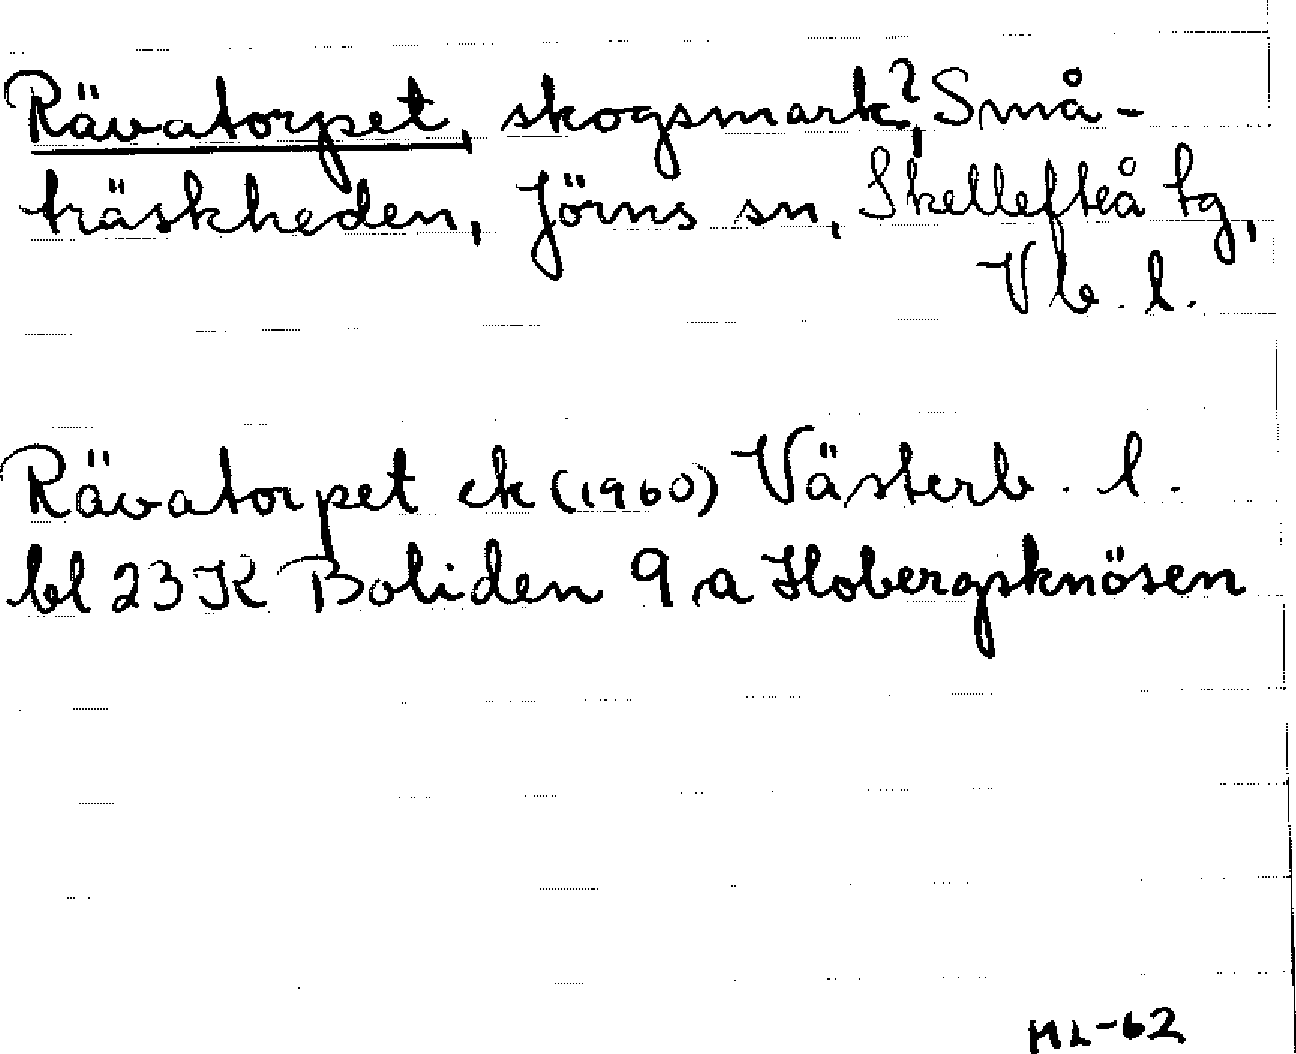 Rävatorpet, skogsmark?, Små-
träskheden, Jörns sn, Skellefteå tg,
Vb. l.
Rävatorpet ek (1960) Västerb. l.
bl 23 K Boliden 9 a Hobergsknösen
ML-62